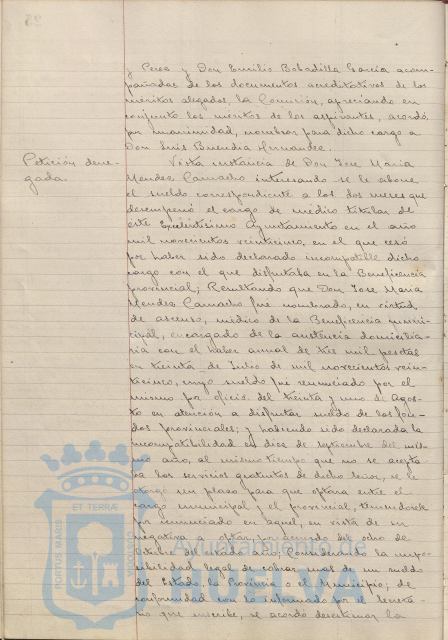 y Perea y Don Emilio Bobadilla García acom-
pañadas de los documentos acreditativos de los
méritos alegados, la Comisión, apreciando en
conjunto los méritos de los aspirantes, acordó,
por unanimidad, nombrar para dicho cargo a
Don Luis Buendia Hernandez.
Petición dene-
gada.
Vista instancia de Don Jose Maria
Mendez Camacho interesando se le abone
el sueldo correspondiente a los dos meses que
desempeñó el cargo de médico titular de
este Excelentisimo Ayuntamiento en el año
mil novecientos veinticinco, en el que cesó
por haber sido declarado incompatible dicho
cargo con el que disfrutaba en la Beneficencia
provincial; Resultando que Don Jose Maria
Mendez Camacho fué nombrado, en virtud
de ascenso, médico de la Beneficencia muni-
cipal, encargado de la asistencia domicilia-
ria con el haber anual de tres mil pesetas
en treinta de Julio de mil novecientos vein-
ticinco, cuyo sueldo fue renunciado por el
mismo por oficio del treinta y uno de Agos-
to en atención a disfrutar sueldo de los fon-
dos provinciales; y habiendo sido declarada la
incompatibilidad en doce de septiembre del mis-
mo año, al mismo tiempo que no se acepta-
ba los servicios gratuitos de dicho señor, se le
otorgó un plazo para que optara entre el
cargo municipal y el provincial, teniendosele
por renunciado en aquel, en vista de su
negativa a optar, por acuerdo del ocho de
Octubre del citado año; Considerando la impo-
sibilidad legal de cobrar mas de un sueldo
del Estado, la Provincia o el Municipio; de
conformidad con lo informado por el Secreta-
rio que suscribe, se acordó desestimar la
PORTUS MARIS
ET TERRAE
CUSTODIA
Ayuntamiento de
HUELVA